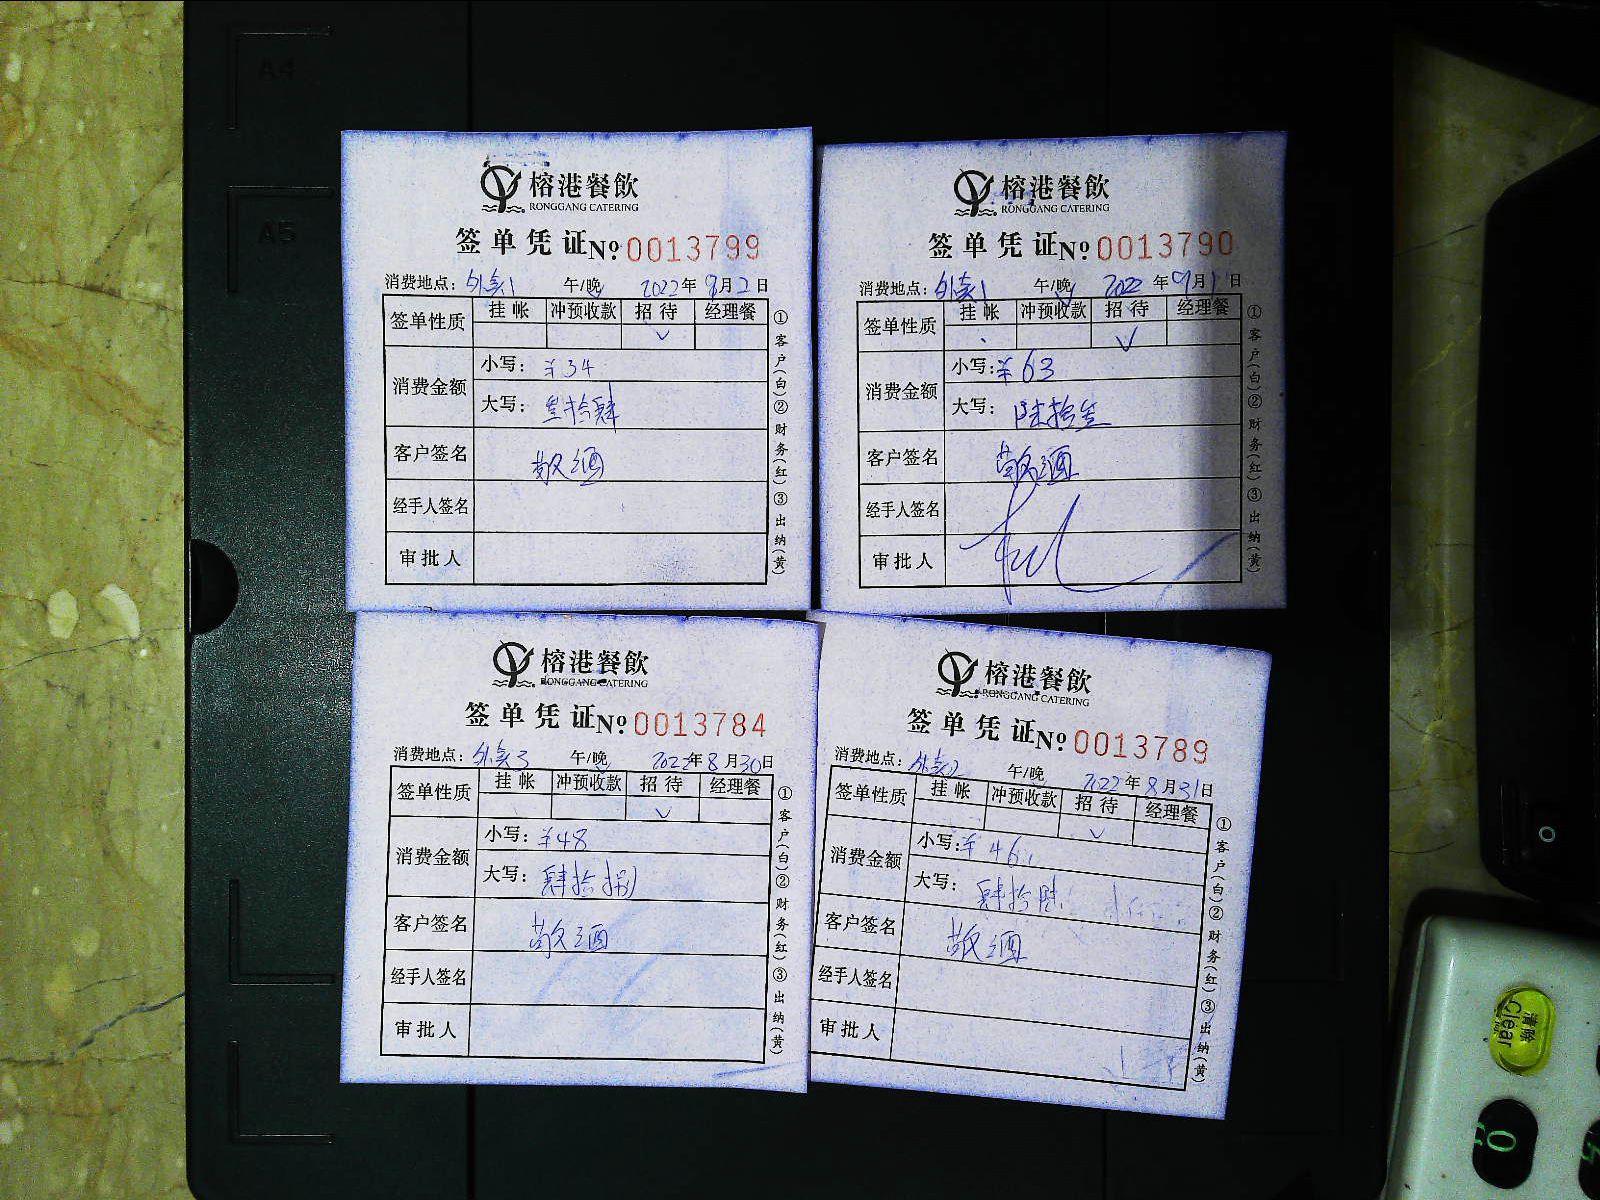 A4
A5
榕港餐飲
RONGGANG CATERING
签单凭证 No 0013799
消费地点: 外卖1 午/晚 2022年9月2日
签单性质 挂帐 冲预收款 招待 经理餐
√
消费金额 小写: ¥34
大写: 叁拾肆
客户签名 敬酒
经手人签名
审批人
①客户(白)②财务(红)③出纳(黄)
榕港餐飲
RONGGANG CATERING
签单凭证 No 0013790
消费地点: 外卖1 午/晚 2022年9月1日
签单性质 挂帐 冲预收款 招待 经理餐
√
消费金额 小写: ¥63
大写: 陆拾叁
客户签名 敬酒
经手人签名
审批人
①客户(白)②财务(红)③出纳(黄)
榕港餐飲
RONGGANG CATERING
签单凭证 No 0013784
消费地点: 外卖3 午/晚 2022年8月30日
签单性质 挂帐 冲预收款 招待 经理餐
√
消费金额 小写: ¥48
大写: 肆拾捌
客户签名 敬酒
经手人签名
审批人
①客户(白)②财务(红)③出纳(黄)
榕港餐飲
RONGGANG CATERING
签单凭证 No 0013789
消费地点: 外卖2 午/晚 2022年8月31日
签单性质 挂帐 冲预收款 招待 经理餐
√
消费金额 小写: ¥46
大写: 肆拾陆
客户签名 敬酒
经手人签名
审批人
①客户(白)②财务(红)③出纳(黄)
清除
Clear
0